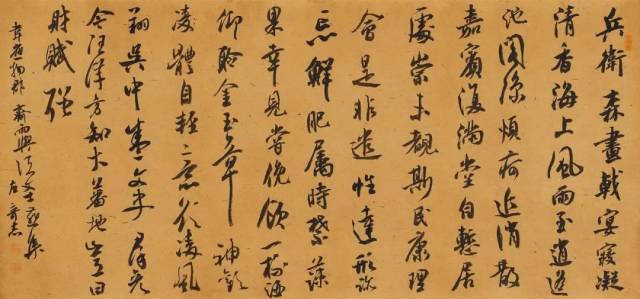 兵衛森畫戟宴寢凝
清香海上風雨至逍遙
池閣涼煩疴近消散
嘉賓復滿堂自慙居
處崇未覩斯民康理
會是非遣性達形跡
忘鮮肥屬時禁蔬
果幸見嘗俛飲一杯酒
仰聆金玉章神歡
凌體自輕意欲凌風
翔吳中盛文史群彥
今汪洋方知大藩地豈曰
財賦強
韋應物郡齋雨與諸文士燕集